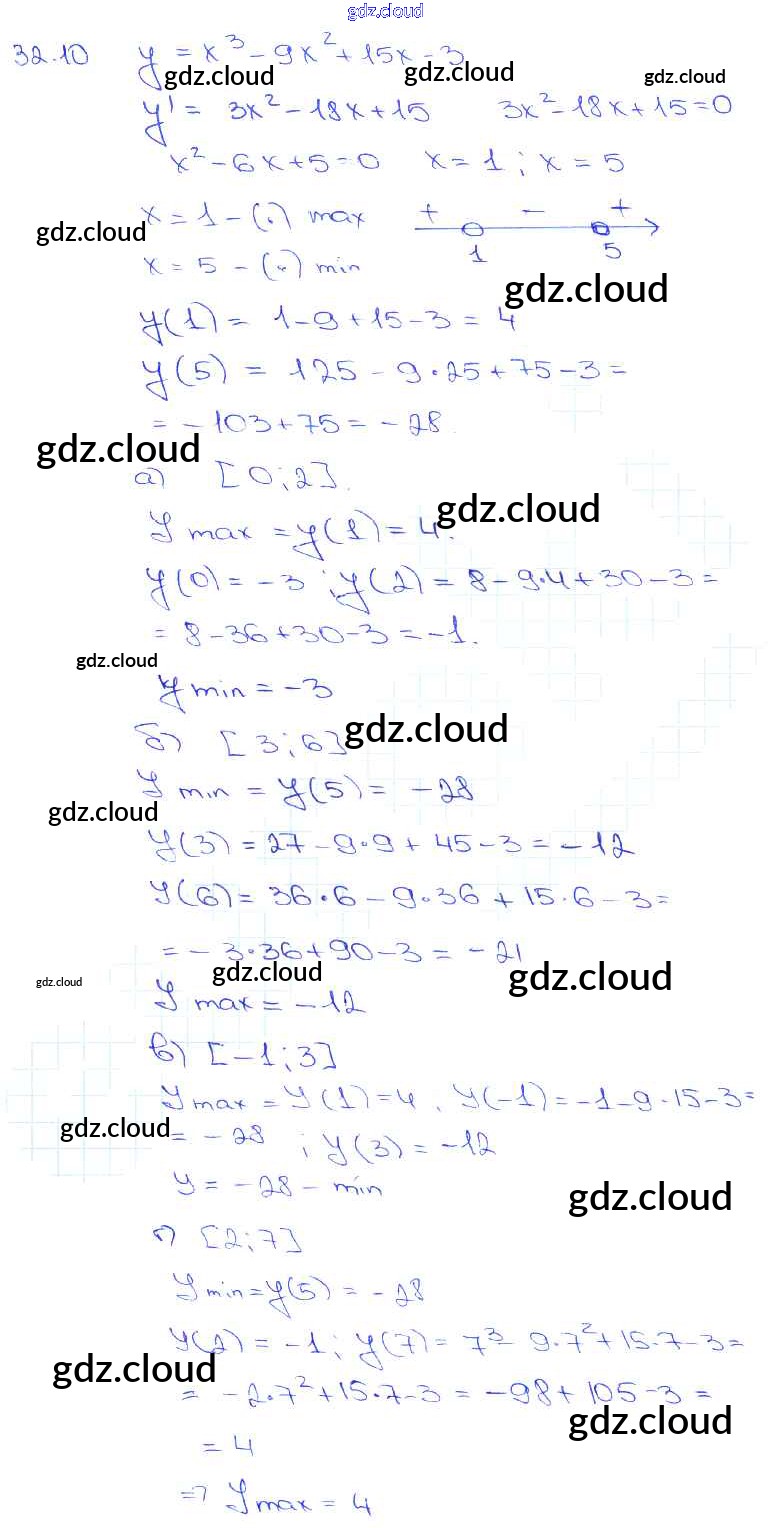 gdz.cloud
32.10 y = x³ - 9x² + 15x - 3
gdz.cloud gdz.cloud gdz.cloud
y' = 3x² - 18x + 15 3x² - 18x + 15 = 0
x² - 6x + 5 = 0 x = 1 ; x = 5
x = 1 - (.) max + - +
gdz.cloud
1 5
x = 5 - (.) min
gdz.cloud
y(1) = 1 - 9 + 15 - 3 = 4
y(5) = 125 - 9·25 + 75 - 3 =
= - 103 + 75 = - 28
gdz.cloud
а) [0;2].
gdz.cloud
y max = y(1) = 4.
y(0) = - 3 ; y(2) = 8 - 9·4 + 30 - 3 =
= 8 - 36 + 30 - 3 = - 1.
gdz.cloud
y min = - 3
gdz.cloud
б) [3;6]
y min = y(5) = - 28
gdz.cloud
y(3) = 27 - 9·9 + 45 - 3 = - 12
y(6) = 36·6 - 9·36 + 15·6 - 3 =
= - 3·36 + 90 - 3 = - 21
gdz.cloud gdz.cloud gdz.cloud
y max = - 12
в) [-1;3]
y max = y(1) = 4, y(-1) = - 1 - 9 - 15 - 3 =
gdz.cloud
= - 28 ; y(3) = - 12
y = - 28 - min
gdz.cloud
г) [2;7]
y min = y(5) = - 28
y(2) = - 1 ; y(7) = 7³ - 9·7² + 15·7 - 3 =
gdz.cloud
= - 2·7² + 15·7 - 3 = - 98 + 105 - 3 =
gdz.cloud
= 4
=> y max = 4